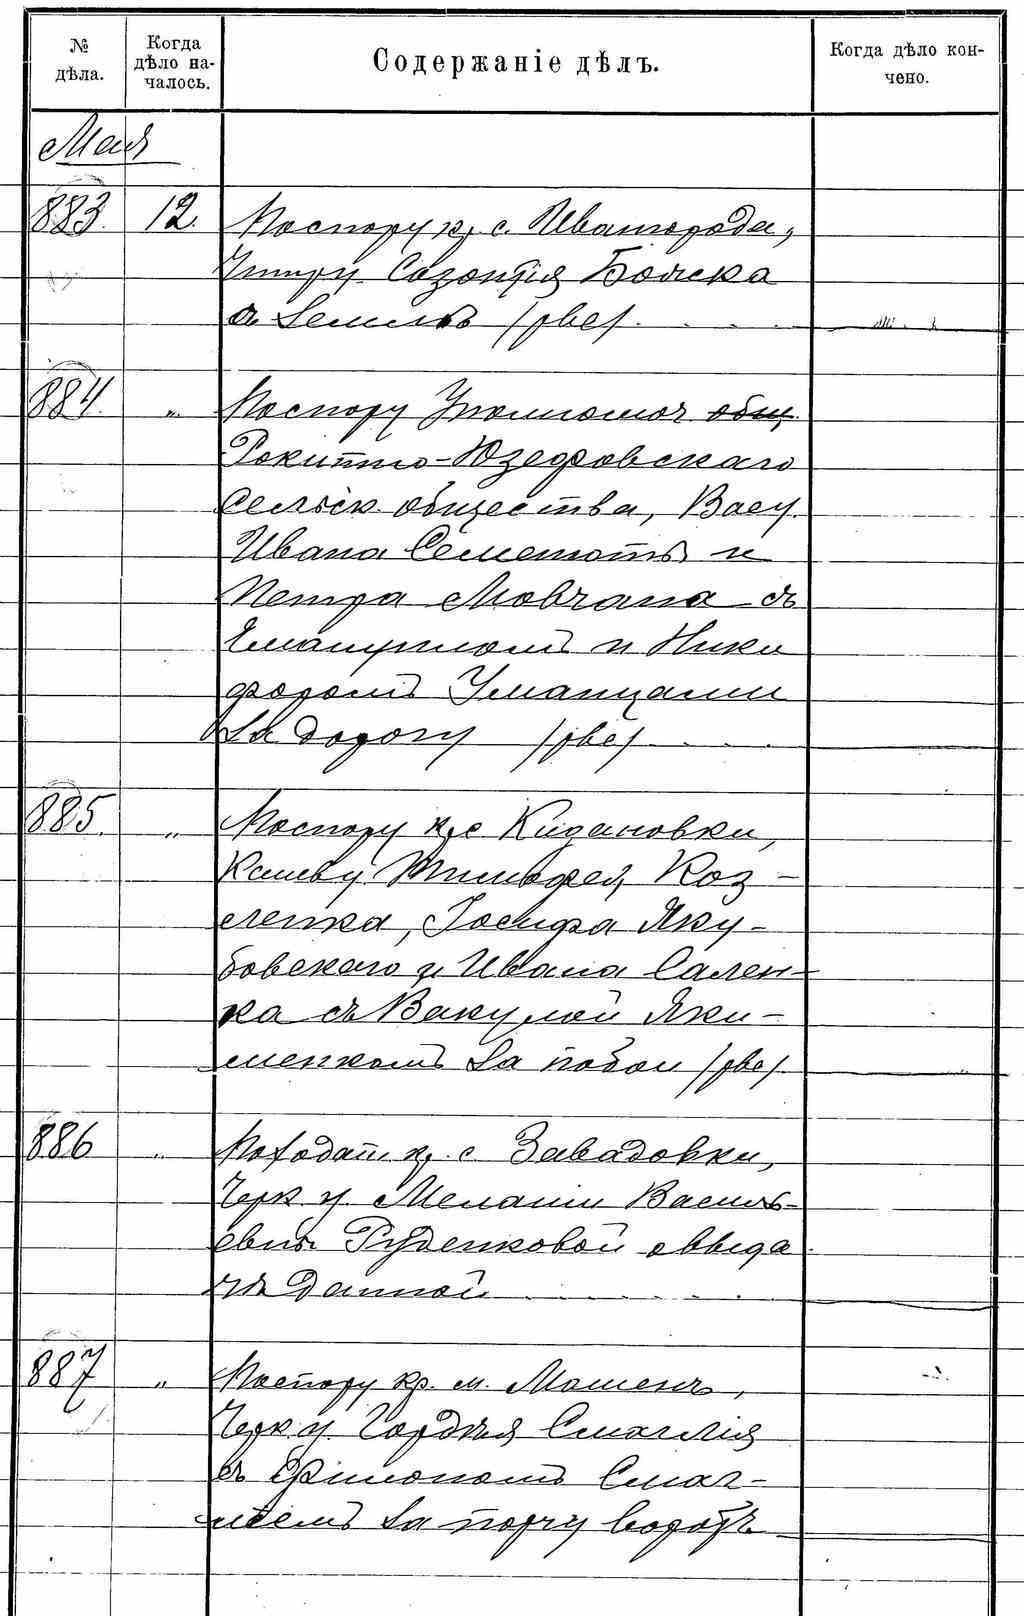 № дѣла.
Когда дѣло на-
чалось.
Содержаніе дѣлъ.
Когда дѣло кон-
чено.
Мая
883. 12. По спору кр. с. Ивангорода,
Созонтія Бойска
о землѣ /рве/.
884. " По спору Уполномоч. общ.
Рокитно-Юзефовскаго
Сельск. общества, Васу.
Ивана и
Петра Мовчана съ
и Ники
форомъ Уманцами
за дорогу /рве/
885. " По спору кр. с Кидановки,
Каневу. Тимофея Коз-
ленка, Іосифа Яку-
бовскаго и Ивана Сален-
ка съ Вакулой Яки-
менкомъ за побои /рве/.
886 " По ходат. кр. с. Завадовки,
Черк у. Меланіи Василь-
евны Руденковой о выда
чѣ данной
887 " По спору кр. м. Мошенъ,
Черк у. Гордѣя Смаглія
съ Филономъ Смаг-
ліемъ за порчу воротъ